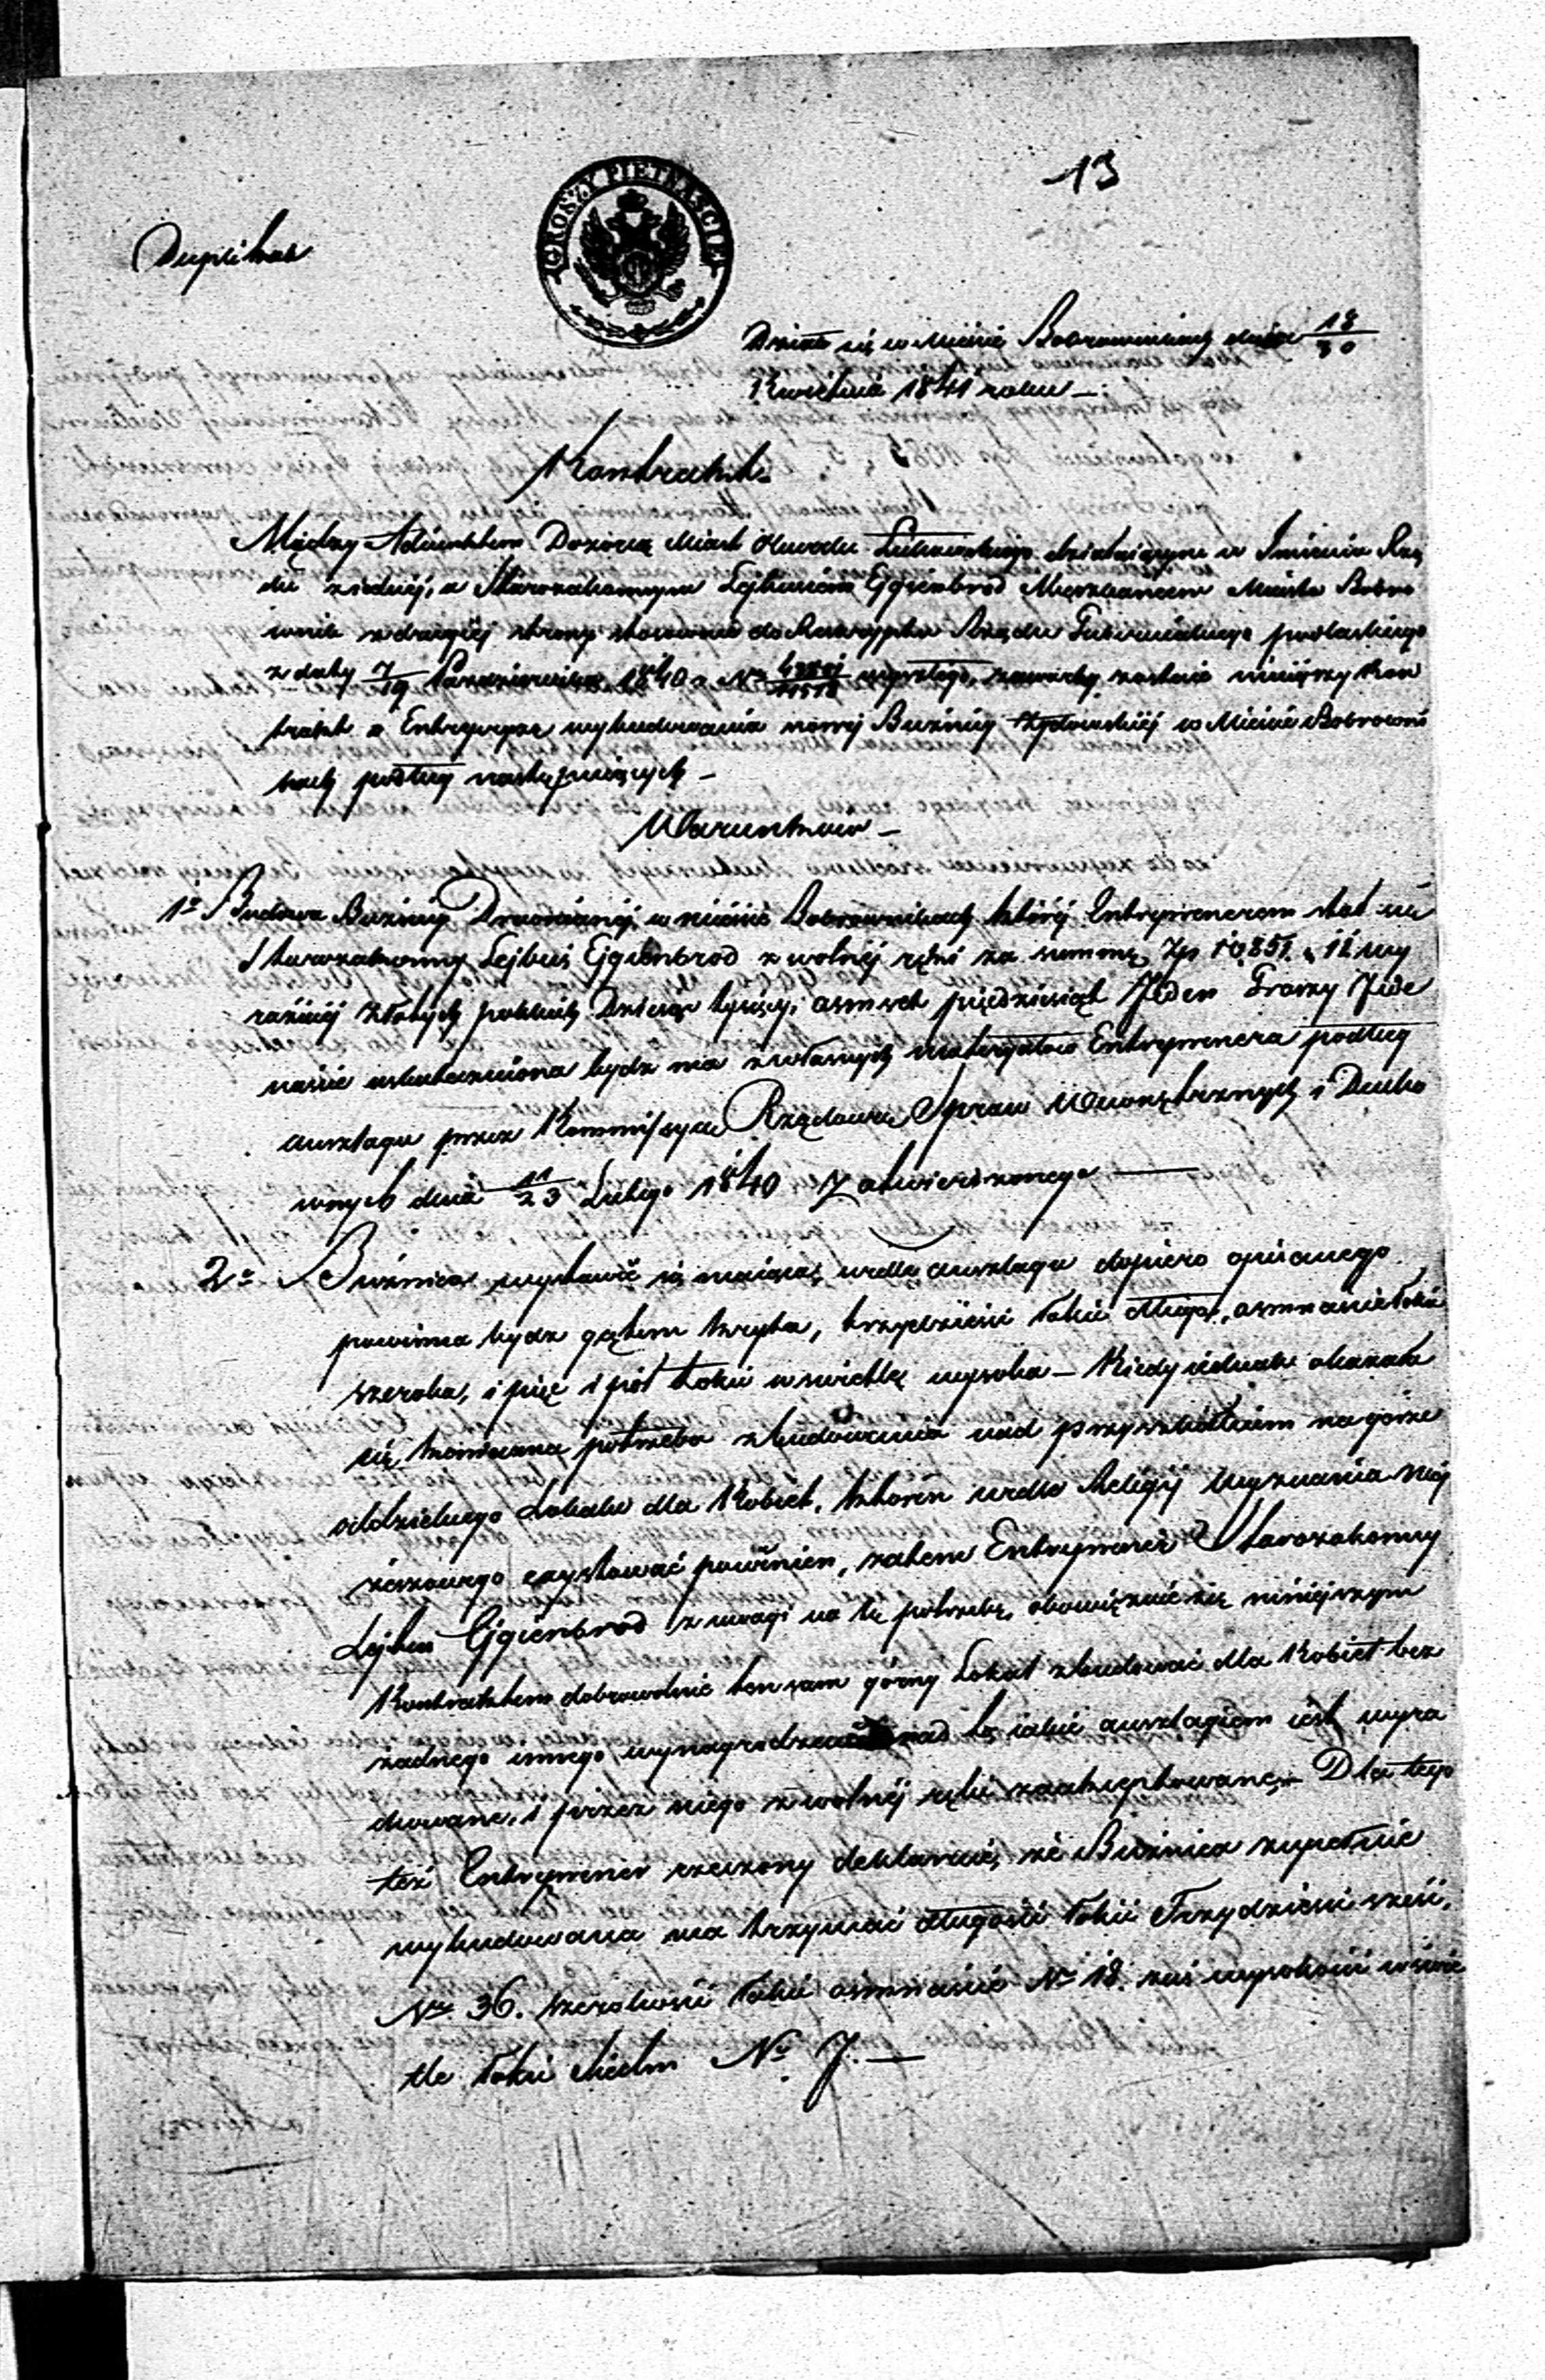 13
GROSZY PIETNAŚCIE
Duplikat
Działo się w Mieście Bobrownikach dnia 18/30
Kwietnia 1841 roku —
Kontrakt
Między Adiunktem Dozorcą Miast Obwodu Łukowskiego działaiącym w Imieniu Rzą
du z iednéj, a Starozakonnym Lejbusiem Ejgienbrod Mieszkańcem Miasta Bobro
wnik z drugiéj strony stosownie do Reskryptu Rządu Gubernialnego podlaskiego
z daty 7/19 Pazdziernika 1840 r No wyszłego, zawarty zostaie ninieyszy Kon
trakt o Entrepryzę wybudowania nowéj Bużnicy żydowskiéj w Mieście Bobrowni
kach podług następuiących —
Warunków —
1o Budowa Bużnicy Drewnianéj w mieście Bobrownikach któréj Entreprenerem stał się
Starozakonny Lejbuś Ejgienbrod z wolnéj ręki za summę Zp 10,851. g 11 wy
raźniéj złotych polskich Dziesięć tysięcy ośmset pięćdziesiąt Jeden Groszy Jede
naście uskuteczniona bydz ma z własnych materyałów Entreprenera podług
anszlagu przez Kommissyą Rządową Spraw Wewnętrznych i Ducho
wnych dnia 11/23 Lutego 1840 r Zatwierdzonego —
2o Bużnica wystawić się maiąca, wedle anszlagu dopiero opisanego
powinna bydz gątem kryta, trzydzieści łokci długa, ośmnaście łokci
szeroka, i pięć i pół łokci w świetle wysoka — Kiedy iednak okazała
się konieczna potrzeba zbudowania nad przysionkiem na górze
oddzielnego Lokalu dla Kobiet, który wedle Religij Wyznania Moy
żeszowego exystować powinien, zatem Entreprener Starozakonny
Lejbuś Ejgienbrod z uwagi na tę potrzebę, obowiązuie się ninieyszym
Kontraktem dobrowolnie ten sam górny Lokal zbudować dla Kobiet bez
żadnego innego wynagrodzenia nad to iakie anszlagiem iest wyra
chowane, i przez niego z wolnéj ręki zaakceptowane — Dla tego
też Entreprener rzeczony deklaruie, że Bużnica zupełnie
wybudowana ma trzymać długości łokci Trzydzieści sześć,
No 36. szerokości łokci ośmnaście No 18. zaś wysokości w świe
tle łokci siedm No 7. —